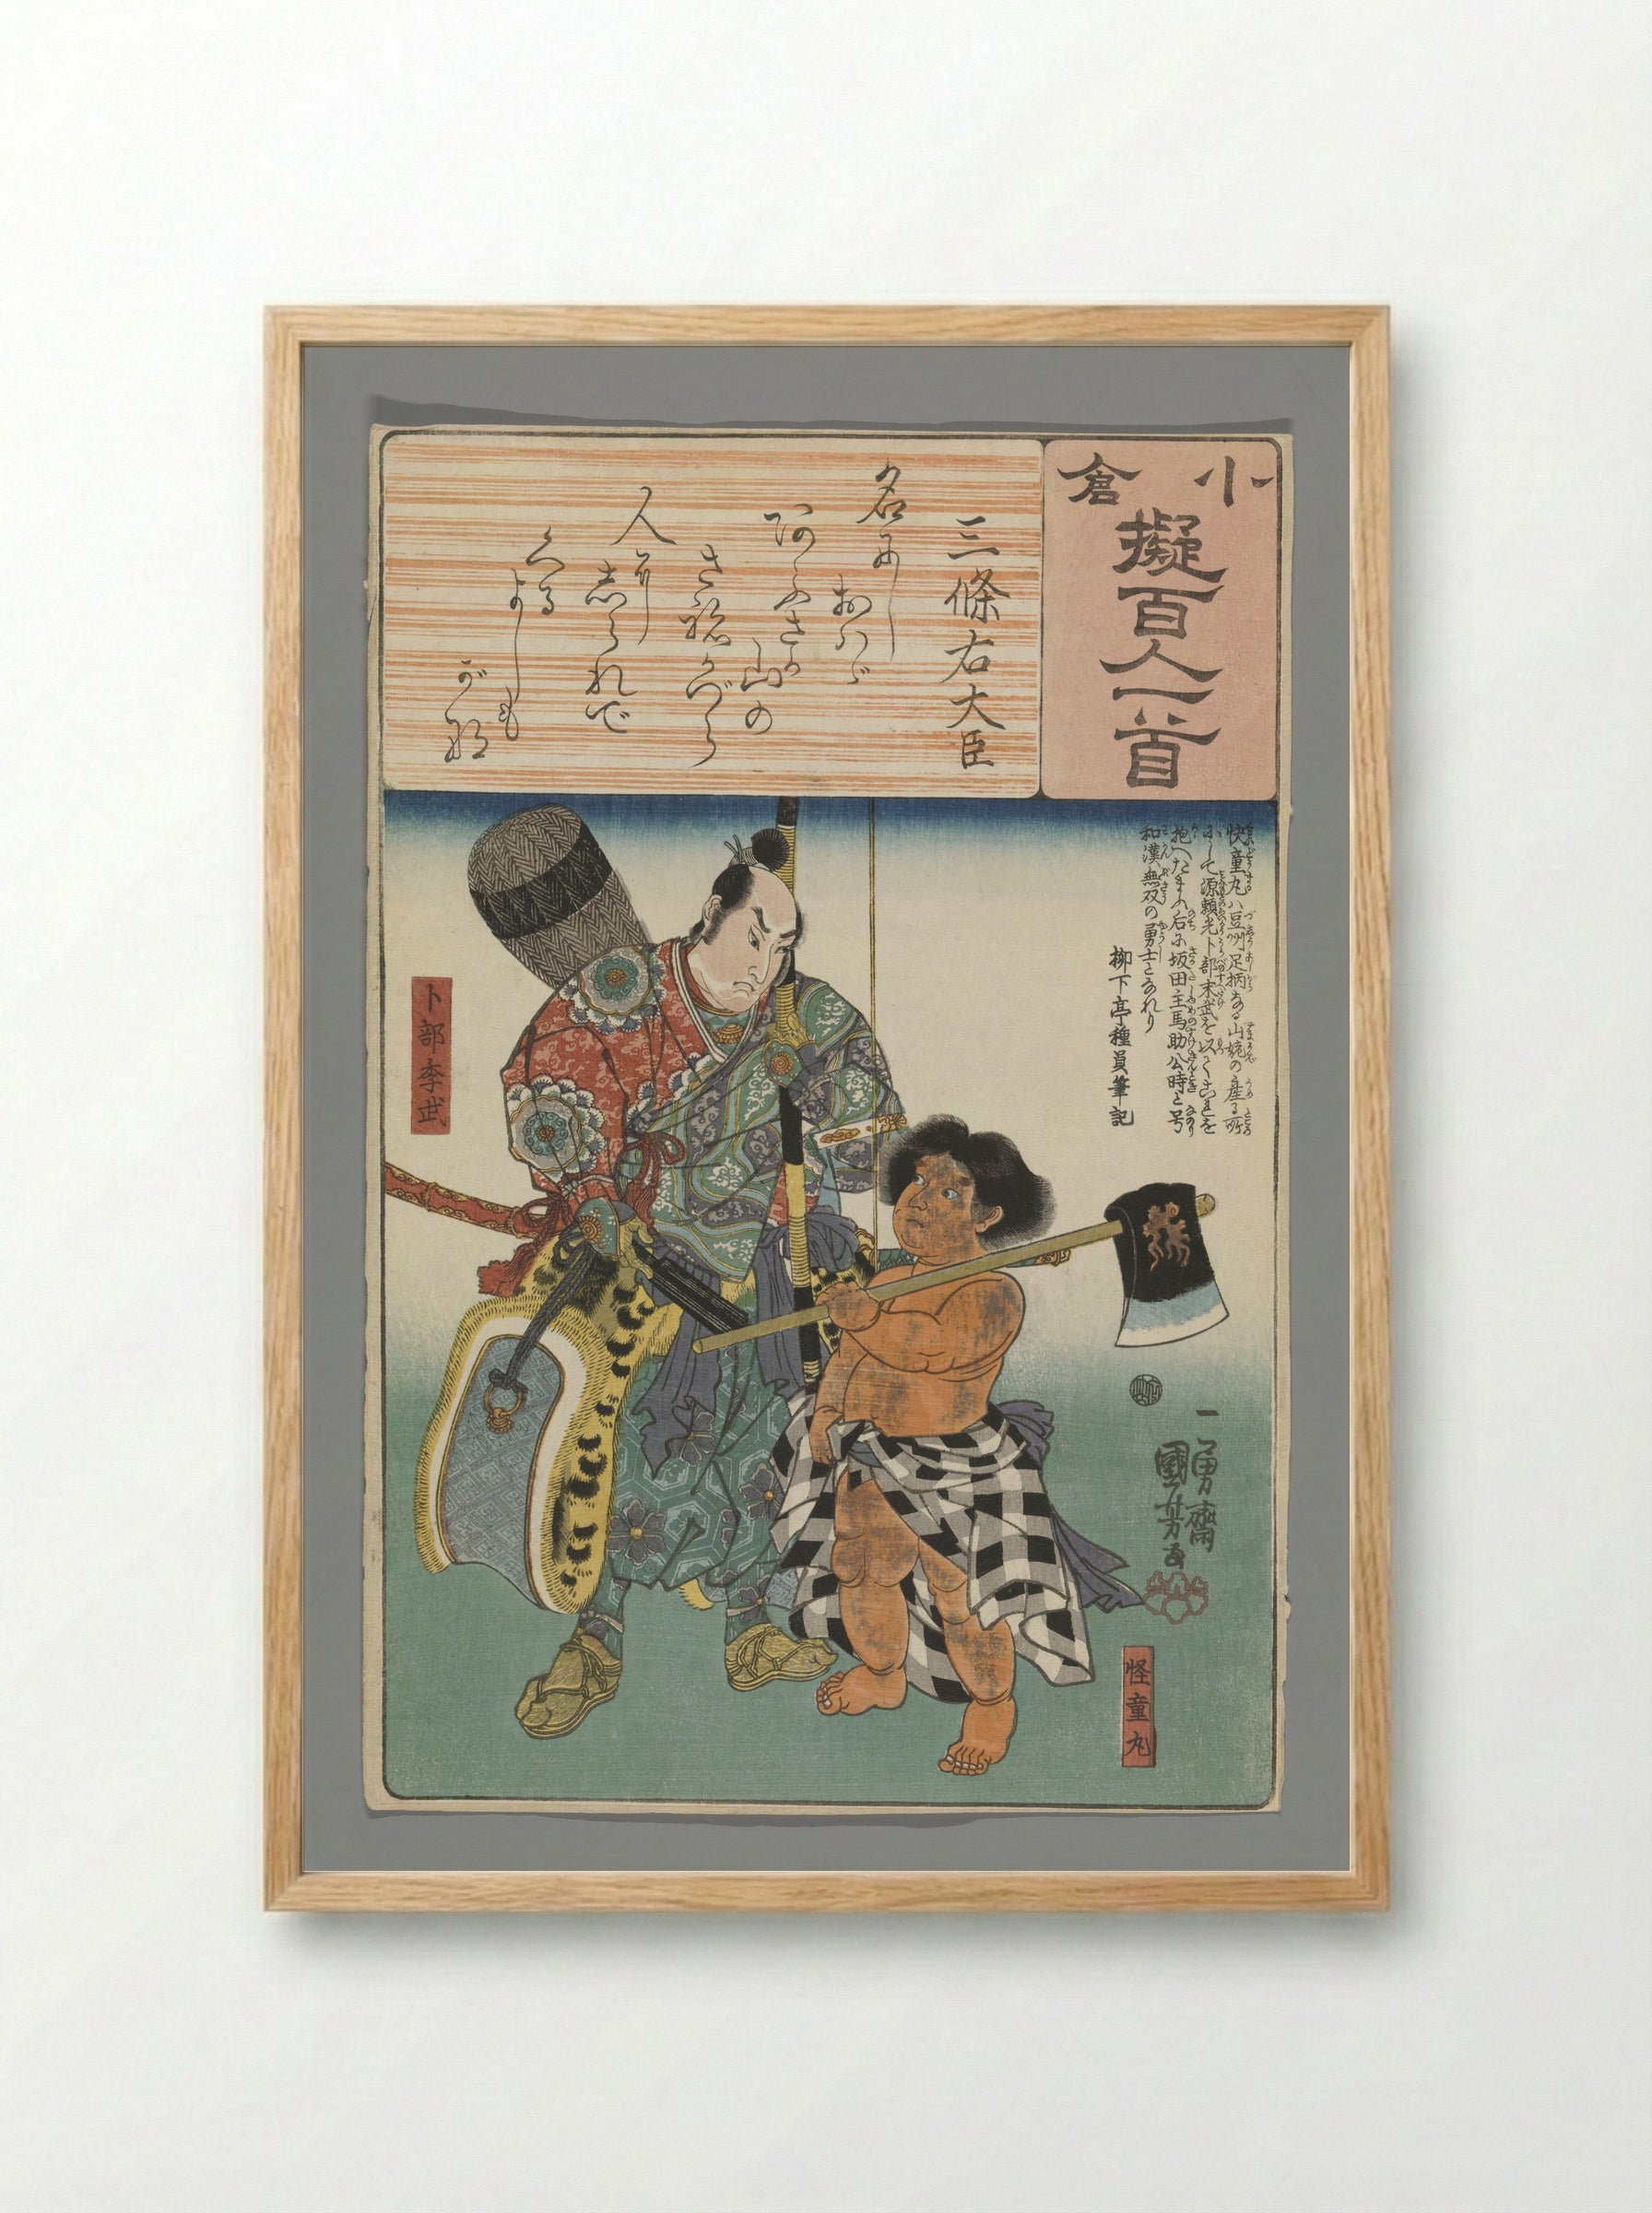 小倉
擬百人一首
三條右大臣
名にし
おはゞ
あふさか
山の
さねかづら
人に
しられで
くる
よしも
がな
快童丸ハ豆州足柄なる山姥の産る所
にして源頼光卜部末武を以てこれを
抱へたまふ后に坂田主馬助公時と号
和漢無双の勇士となれり
柳下亭種員筆記
卜部季武
一勇齋
國芳画
怪童丸